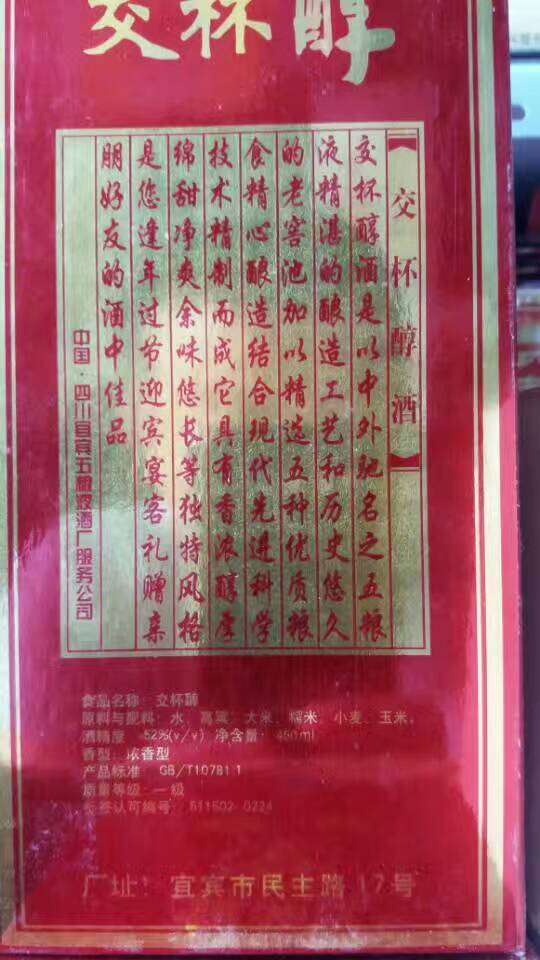 交杯醇
交杯醇酒
交杯醇酒是以中外驰名之五粮
液精湛的酿造工艺和历史悠久
的老窖池加以精选五种优质粮
食精心酿造结合现代先进科学
技术精制而成它具有香浓醇厚
绵甜净爽余味悠长等独特风格
是您逢年过节迎宾宴客礼赠亲
朋好友的酒中佳品
中国·四川宜宾五粮液酒厂服务公司
食品名称：交杯醇
原料与配料：水、高粱、大米、糯米、小麦、玉米。
酒精度：52%(v/v) 净含量：450ml
香型：浓香型
产品标准：GB/T10781.1
质量等级：一级
标签认可编号：511502-0224
厂址：宜宾市民主路17号